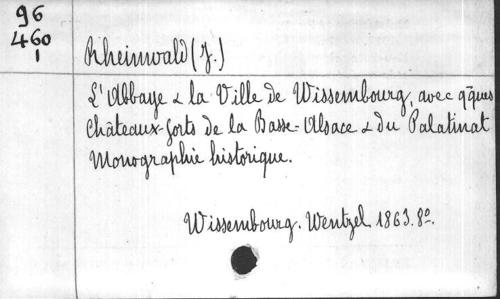 96
460
1
Rheinwald (J.)
L'Abbaye & la Ville de Wissembourg, avec qques
Châteaux-forts de la Basse-Alsace & du Palatinat
Monographie historique.
Wissembourg. Wentzel. 1863. 8º.